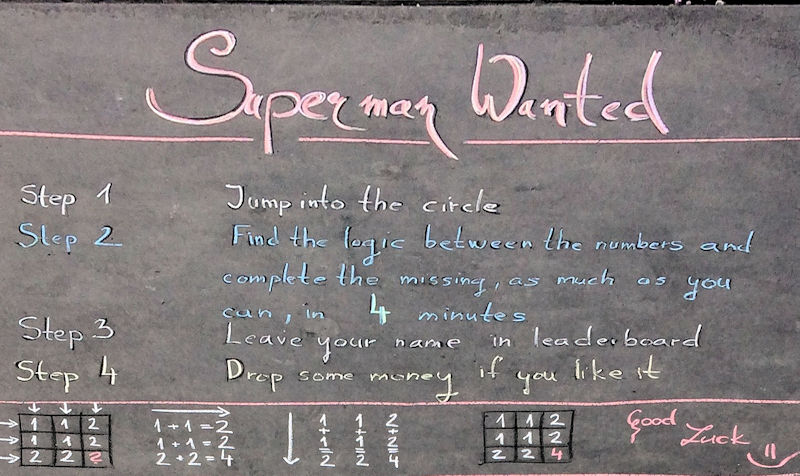 Superman Wanted
Step 1 Jump into the circle
Step 2 Find the logic between the numbers and
complete the missing, as much as you
can, in 4 minutes
Step 3 Leave your name in leaderboard
Step 4 Drop some money if you like it
1 1 2
1 1 2
2 2 ?
1 + 1 = 2
1 + 1 = 2
2 + 2 = 4
1 1 2
+ + +
1 1 2
= = =
2 2 4
1 1 2
1 1 2
2 2 4
Good Luck